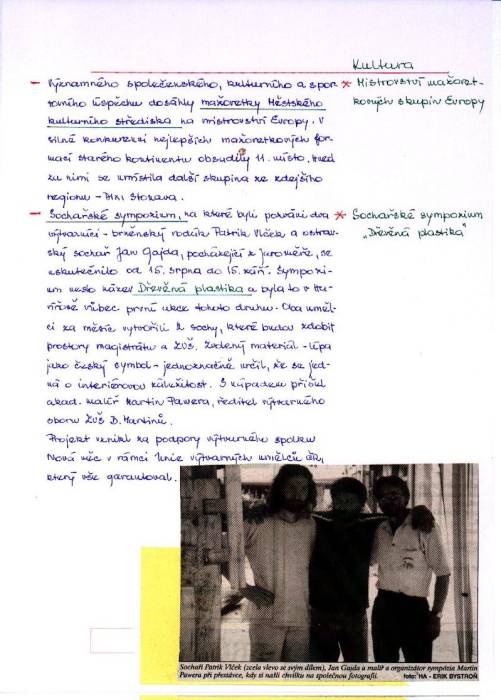 Kultura
- Významného společenského, kulturního a spor-
tovního úspěchu dosáhly mažoretky Městského
kulturního střediska na mistrovství Evropy. V
silné konkurenci nejlepších mažoretkových for-
mací starého kontinentu obsadily 11. místo, hned
za nimi se umístila další skupina ze zdejšího
regionu - Mixi Stonava.
* Mistrovství mažoret-
kových skupin Evropy
- Sochařské symposium, na které byli pozváni dva
výtvarníci - brněnský rodák Patrik Vlček a ostrav-
ský sochař Jan Gajda, pocházející z Jaroměře, se
uskutečnilo od 15. srpna do 15. září. Sympozi-
um neslo název Dřevěná plastika a byla to v Ha-
vířově vůbec první akce tohoto druhu. Oba uměl-
ci za měsíc vytvořili sochy, které budou zdobit
prostory magistrátu a ZUŠ. Zvolený materiál - lípa
jako český symbol - jednoznačně určil, že se jed-
ná o interiérovou záležitost. S nápadem přišel
akad. malíř Martin Pawera, ředitel výtvarného
oboru ZUŠ B. Martinů.
Projekt vznikl za podpory výtvarného spolku
Nová věc v rámci Unie výtvarných umělců ČR,
který vše garantoval.
* Sochařské symposium
„Dřevěná plastika"
Sochaři Patrik Vlček (zcela vlevo se svým dílem), Jan Gajda a malíř a organizátor sympózia Martin
Pawera při přestávce, kdy si našli chvilku na společnou fotografii. foto: HA - ERIK BYSTROŇ